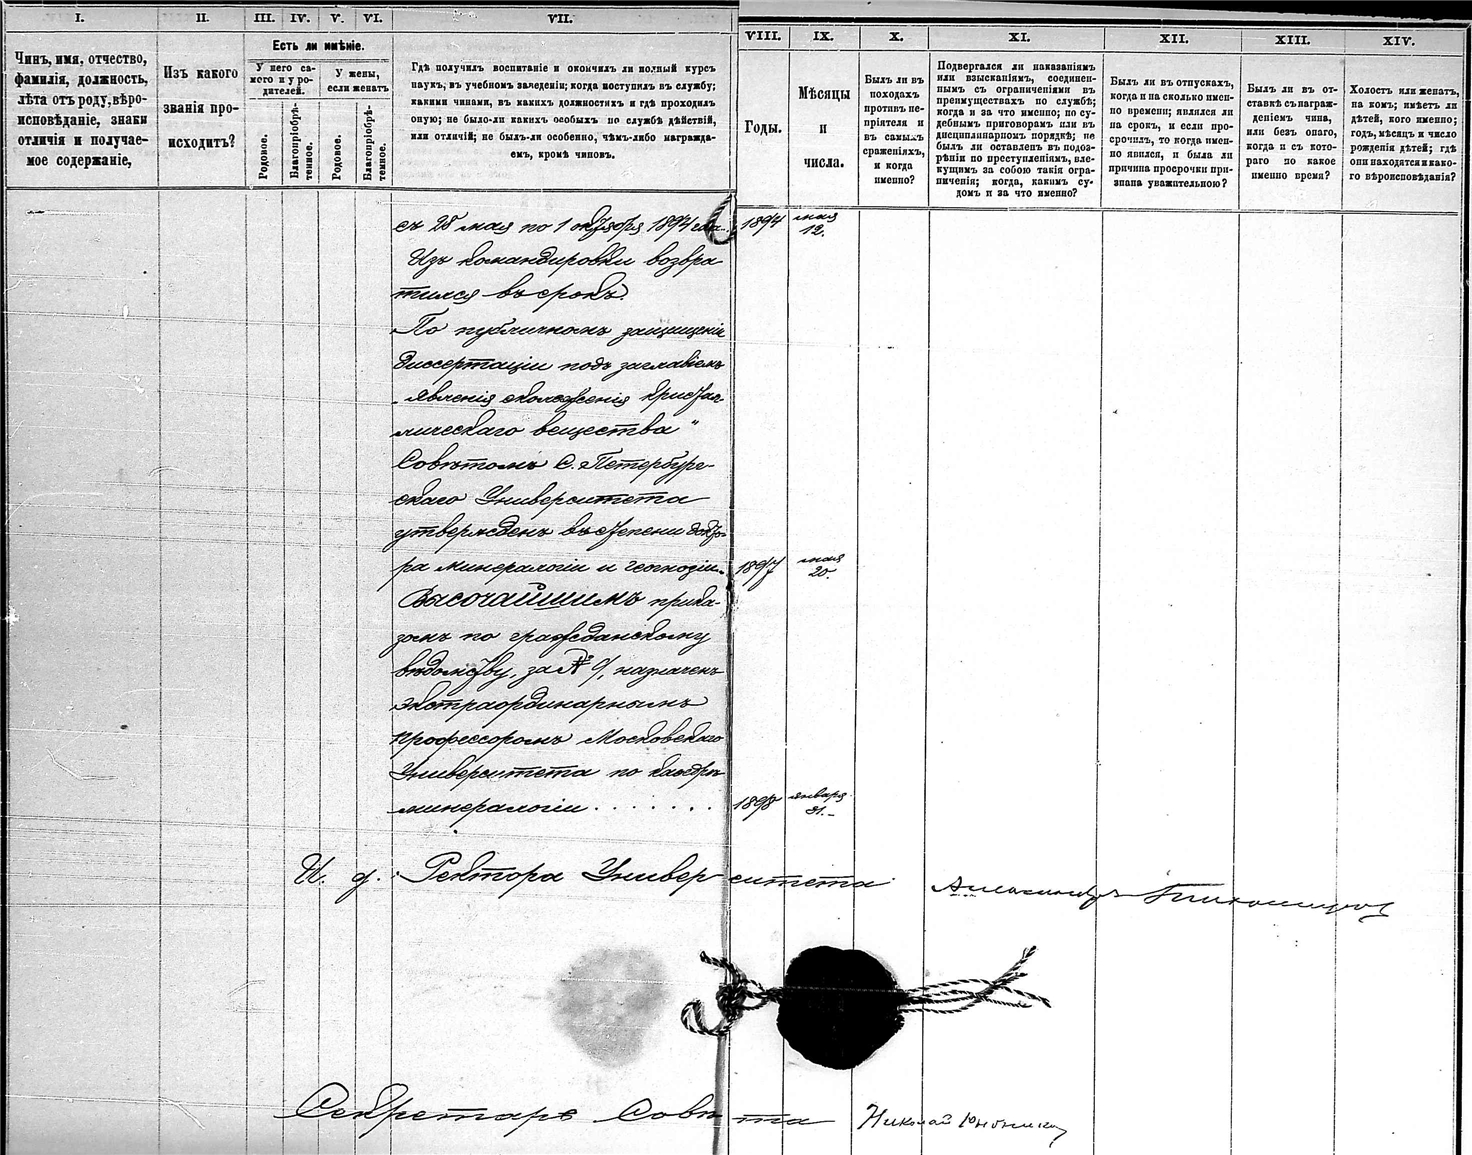 I.
II.
III.
IV.
V.
VI.
VII.
VIII.
IX.
X.
XI.
XII.
XIII.
XIV.
Чинъ, имя, отчество,
фамилія, должность,
лѣта отъ роду, вѣро-
исповѣданіе, знаки
отличія и получае-
мое содержаніе,
Изъ какого
званія про-
исходитъ?
Есть ли имѣніе.
У него са-
мого и у ро-
дителей.
У жены,
если женатъ
Родовое.
Благопріобрѣ-
тенное.
Родовое.
Благопріобрѣ-
тенное.
Гдѣ получилъ воспитаніе и окончилъ ли полный курсъ
наукъ, въ учебномъ заведеніи; когда поступилъ въ службу;
какими чинами, въ какихъ должностяхъ и гдѣ проходилъ
оную; не было-ли какихъ особыхъ по службѣ дѣйствій,
или отличій; не былъ-ли особенно, чѣмъ-либо награжда-
емъ, кромѣ чиновъ.
Годы.
Мѣсяцы
и
числа.
Былъ ли въ
походахъ
противъ не-
пріятеля и
въ самыхъ
сраженіяхъ,
и когда
именно?
Подвергался ли наказаніямъ
или взысканіямъ, соединен-
нымъ съ ограниченіями въ
преимуществахъ по службѣ;
когда и за что именно; по су-
дебнымъ приговорамъ или въ
дисциплинарномъ порядкѣ; не
былъ ли оставленъ въ подоз-
рѣніи по преступленіямъ, вле-
кущимъ за собою такія огра-
ниченія; когда, какимъ су-
домъ и за что именно?
Былъ ли въ отпускахъ,
когда и на сколько имен-
но времени; являлся ли
на срокъ, и если про-
срочилъ, то когда имен-
но явился, и была ли
причина просрочки при-
знана уважительною?
Былъ ли въ от-
ставкѣ съ награж-
деніемъ чина,
или безъ онаго,
когда и съ кото-
раго по какое
именно время?
Холостъ или женатъ,
на комъ; имѣетъ ли
дѣтей, кого именно;
годъ, мѣсяцъ и число
рожденія дѣтей; гдѣ
они находятся и како-
го вѣроисповѣданія?
съ 28 мая по 1 октября 1894 года.
1894
мая
12.
Изъ командировки возвра-
тился въ срокъ.
По публичномъ защищеніи
диссертаціи подъ заглавіемъ
„Явленія скольженія кристал-
лическаго вещества“
Совѣтомъ С. Петербург-
скаго Университета
утвержденъ въ степени докто-
ра минералогіи и геогнозіи.
1897
мая
20.
Высочайшимъ прика-
зомъ по гражданскому
вѣдомству, за № 9, назначенъ
экстраординарнымъ
профессоромъ Московскаго
Университета по каѳедрѣ
минералогіи . . . . . . .
1898
января
31.
И. д. Ректора Университета
Секретарь Совѣта
Николай